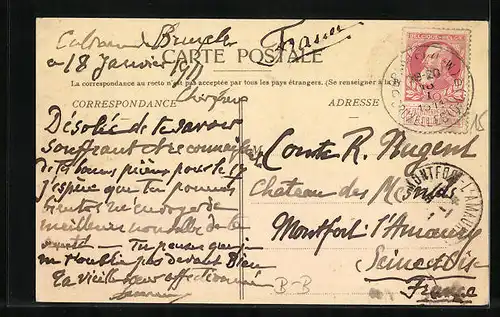 Bruxelles
France
le 18 Janvier 1911
CARTE POSTALE
La correspondance au recto n'est pas acceptée par tous les pays étrangers. (Se renseigner à la
CORRESPONDANCE
ADRESSE
Désolée de te savoir
souffrant et reconnaissante
de tes bonnes prières pour le 17
j'espère que tu pourras
bientôt m'envoyer de
meilleures nouvelles de ta
santé — Tu penses que je
ne t'oublie pas devant Dieu
Ta vieille sœur affectionnée
Comte R. Nugent
Château des Mesnuls
Montfort l'Amaury
Seine et Oise
France
B-B
15
MONTFORT-L'AMAURY